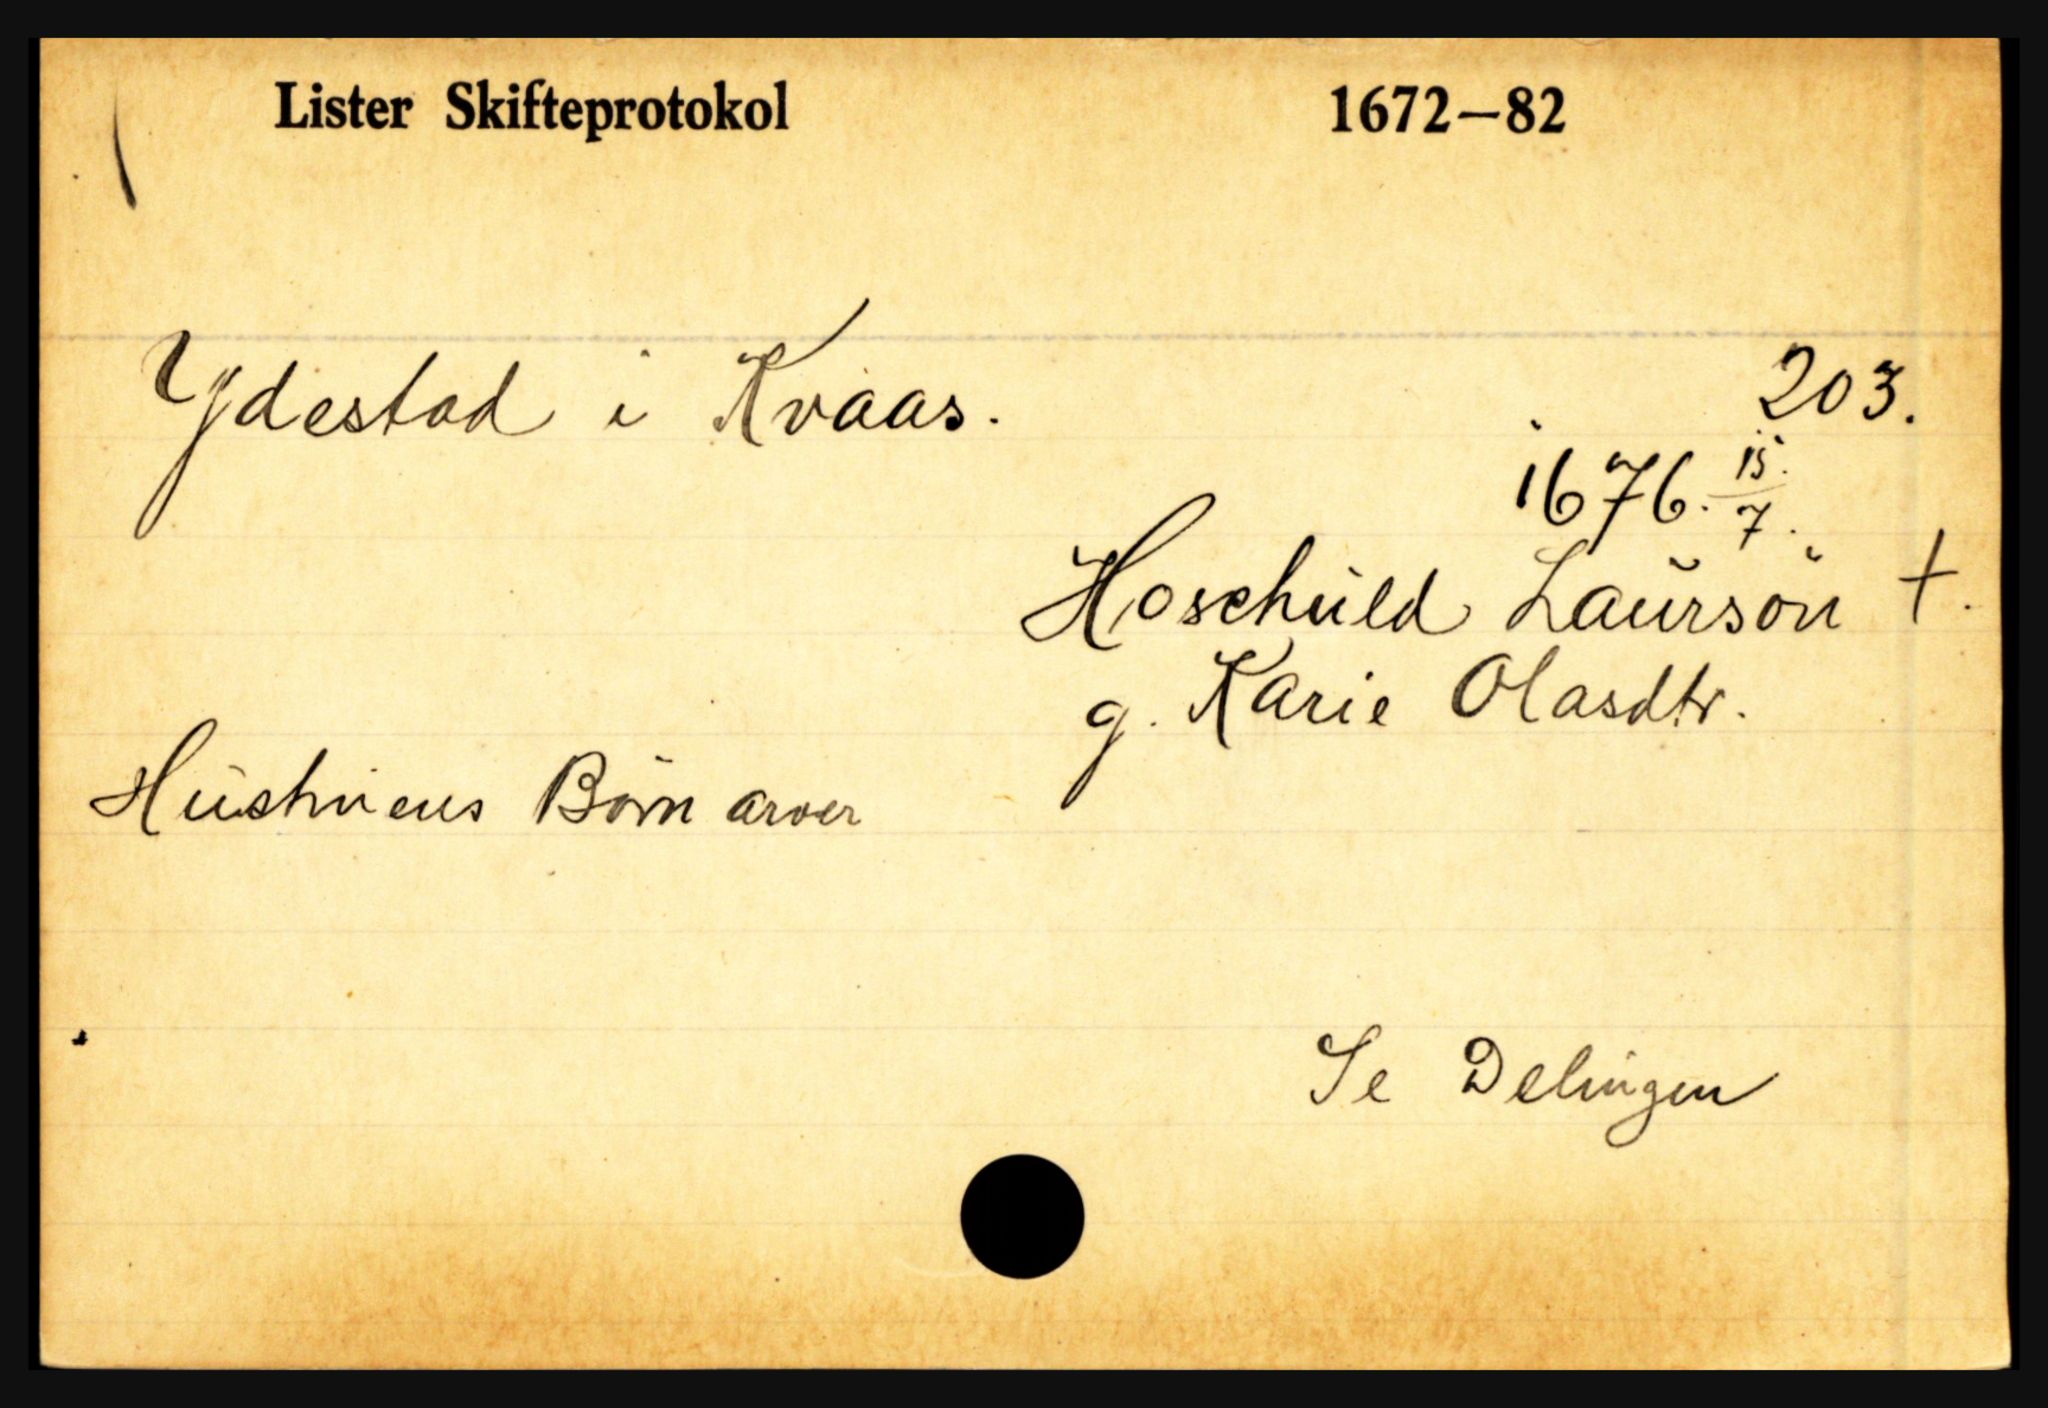 Lister Skifteprotokol 1672—82
Ydestad i Kvaas. 203.
1676. 15/7.
Hoschuld Laursøn †.
g. Karie Olasdtr.
Hustruens Børn arver
Se Delingen